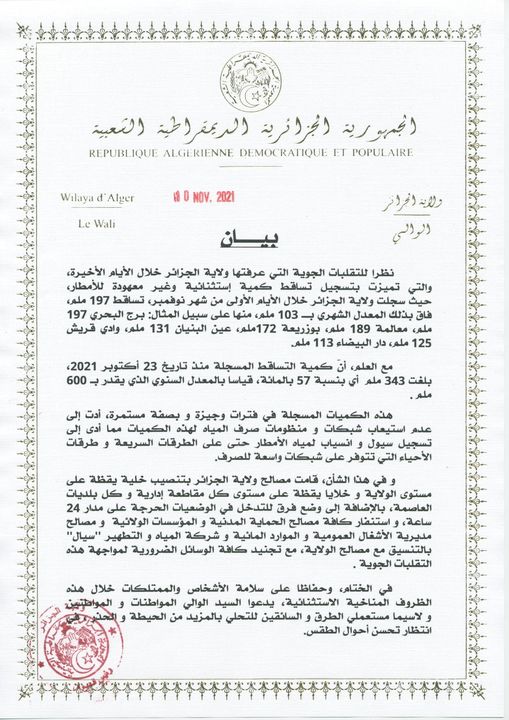 الجمهورية الجزائرية الديمقراطية الشعبية
REPUBLIQUE ALGERIENNE DEMOCRATIQUE ET POPULAIRE
Wilaya d'Alger
ولاية الجزائر
Le Wali
الوالي
10 NOV. 2021
بيـــان
نظرا للتقلبات الجوية التي عرفتها ولاية الجزائر خلال الأيام الأخيرة،
والتي تميزت بتسجيل تساقط كمية إستثنائية وغير معهودة للأمطار،
حيث سجلت ولاية الجزائر خلال الأيام الأولى من شهر نوفمبر، تساقط 197 ملم،
فاق بذلك المعدل الشهري بـــ 103 ملم، منها على سبيل المثال: برج البحري 197
ملم، معالمة 189 ملم، بوزريعة 172ملم، عين البنيان 131 ملم، وادي قريش
125 ملم، دار البيضاء 113 ملم.
مع العلم، أنّ كمية التساقط المسجلة منذ تاريخ 23 أكتوبر 2021،
بلغت 343 ملم أي بنسبة 57 بالمائة، قياسا بالمعدل السنوي الذي يقدر بـ 600
ملم .
هذه الكميات المسجلة في فترات وجيزة و بصفة مستمرة، أدت إلى
عدم استيعاب شبكات و منظومات صرف المياه لهذه الكميات مما أدى إلى
تسجيل سيول و انسياب لمياه الأمطار حتى على الطرقات السريعة و طرقات
الأحياء التي تتوفر على شبكات واسعة للصرف.
و في هذا الشأن، قامت مصالح ولاية الجزائر بتنصيب خلية يقظة على
مستوى الولاية و خلايا يقظة على مستوى كل مقاطعة إدارية و كل بلديات
العاصمة، بالإضافة إلى وضع فرق للتدخل في الوضعيات الحرجة على مدار 24
ساعة، و استنفار كافة مصالح الحماية المدنية و المؤسسات الولائية و مصالح
مديرية الأشغال العمومية و الموارد المائية و شركة المياه و التطهير "سيال"
بالتنسيق مع مصالح الولاية، مع تجنيد كافة الوسائل الضرورية لمواجهة هذه
التقلبات الجوية .
في الختام، وحفاظا على سلامة الأشخاص والممتلكات خلال هذه
الظروف المناخية الاستثنائية، يدعوا السيد الوالي المواطنات و المواطنين
و لاسيما مستعملي الطرق و السائقين للتحلي بالمزيد من الحيطة و الحذر، في
انتظار تحسن أحوال الطقس.